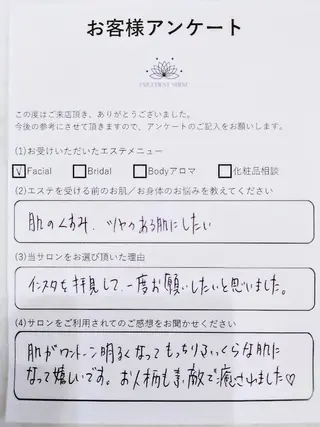 お客様アンケート
この度はご来店頂き、ありがとうございました。
今後の参考にさせて頂きますので、アンケートのご記入をお願いします。
(1)お受けいただいたエステメニュー
☑Facial □Bridal □Bodyアロマ □化粧品相談
(2)エステを受ける前のお肌／お身体のお悩みを教えてください
肌のくすみ、ツヤのある肌にしたい
(3)当サロンをお選び頂いた理由
インスタを拝見して、一度お願いしたいと思いました。
(4)サロンをご利用されてのご感想をお聞かせください
肌がワントーン明るくなってもっちりふっくらな肌に
なって嬉しいです。お人柄も素敵で癒されました♡